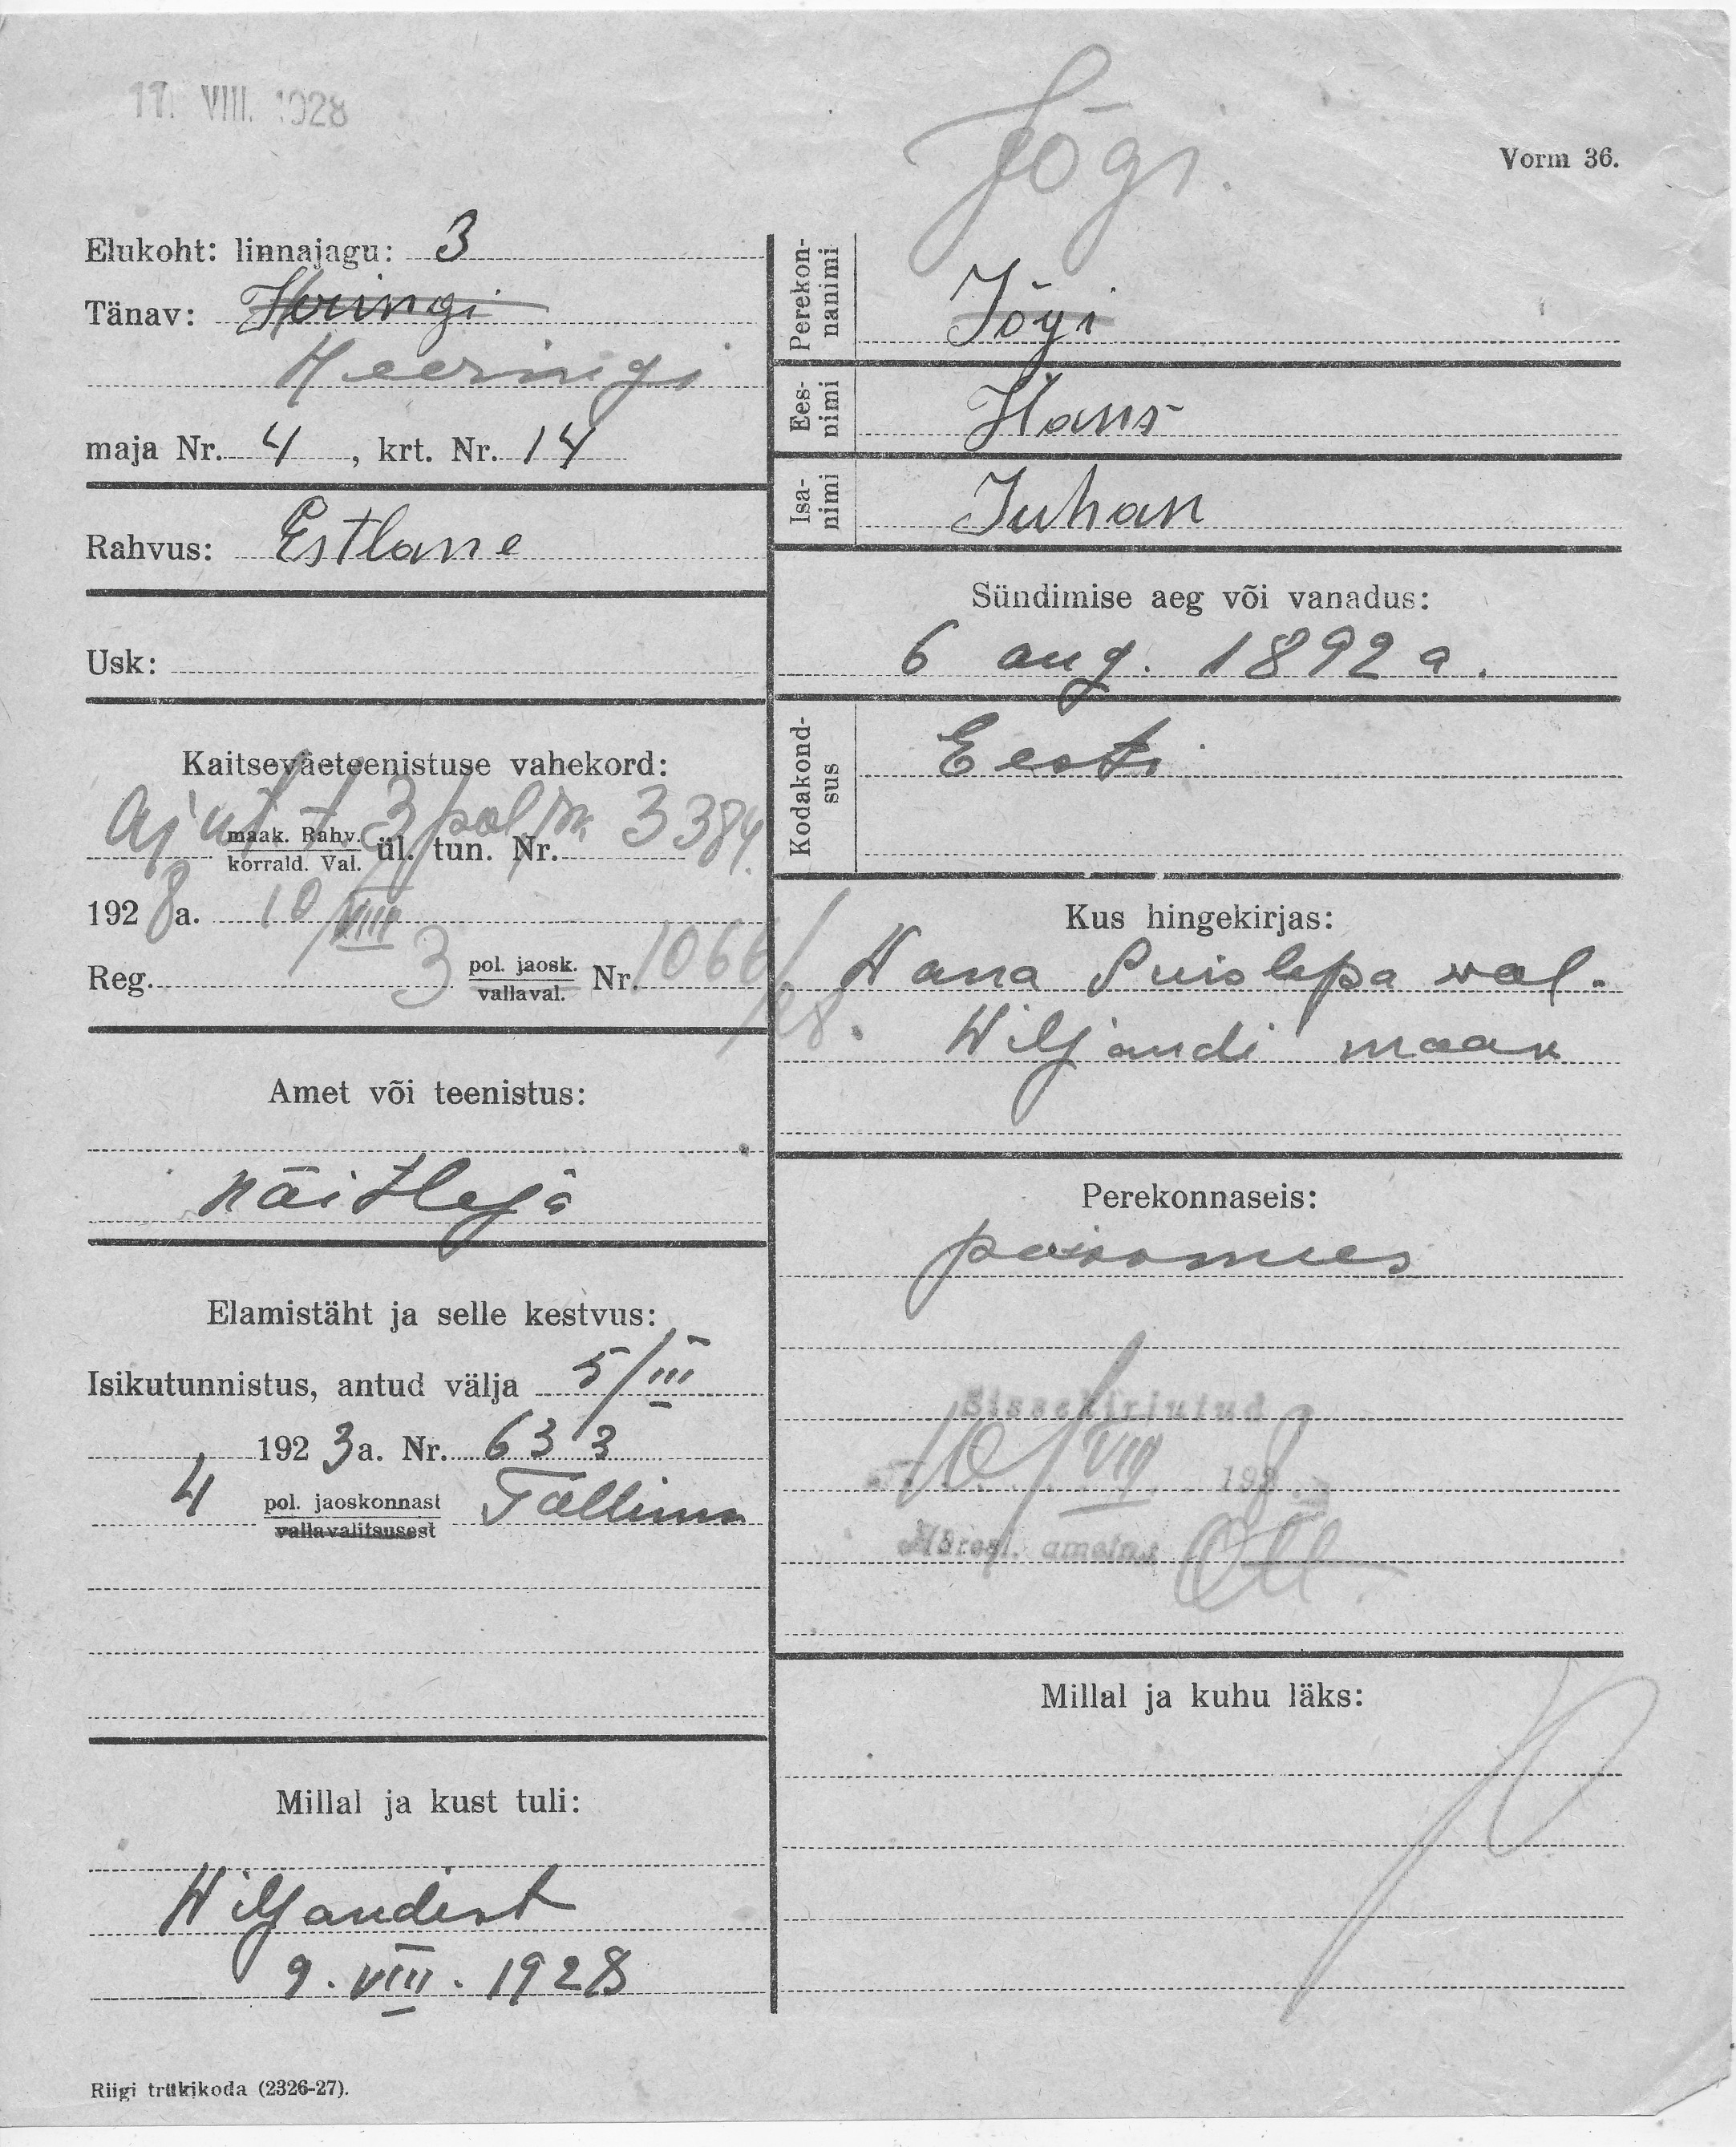 17. VIII. 1928
Jõgi.
Vorm 36.
Elukoht: linnajagu: 3
Tänav: Heringi
Heeringi
maja Nr. 4, krt. Nr. 14
Rahvus: Estlane
Usk:
Kaitseväeteenistuse vahekord:
Ajut. t. 3 pol. jsk 3384.
maak. Rahv. korrald. Val. ül. tun. Nr.
1928 a. 10/VIII
Reg. 3 pol. jaosk. vallaval. Nr. 1066/28.
Amet või teenistus:
näitleja
Elamistäht ja selle kestvus:
Isikutunnistus, antud välja 5/III
1923 a. Nr. 633
4 pol. jaoskonnast vallavalitsusest Tallinn
Millal ja kust tuli:
Wiljandist
9. VIII. 1928
Riigi trükikoda (2326-27).
Perekonnanimi Jõgi
Eesnimi Hans
Isanimi Juhan
Sündimise aeg või vanadus:
6 aug. 1892 a.
Kodakondsus Eesti
Kus hingekirjas:
Wana Suislepa wal.
Wiljandi maak
Perekonnaseis:
poissmees
Sissekirjutud
10/VIII 1928
Adresl. ametn.
Millal ja kuhu läks: